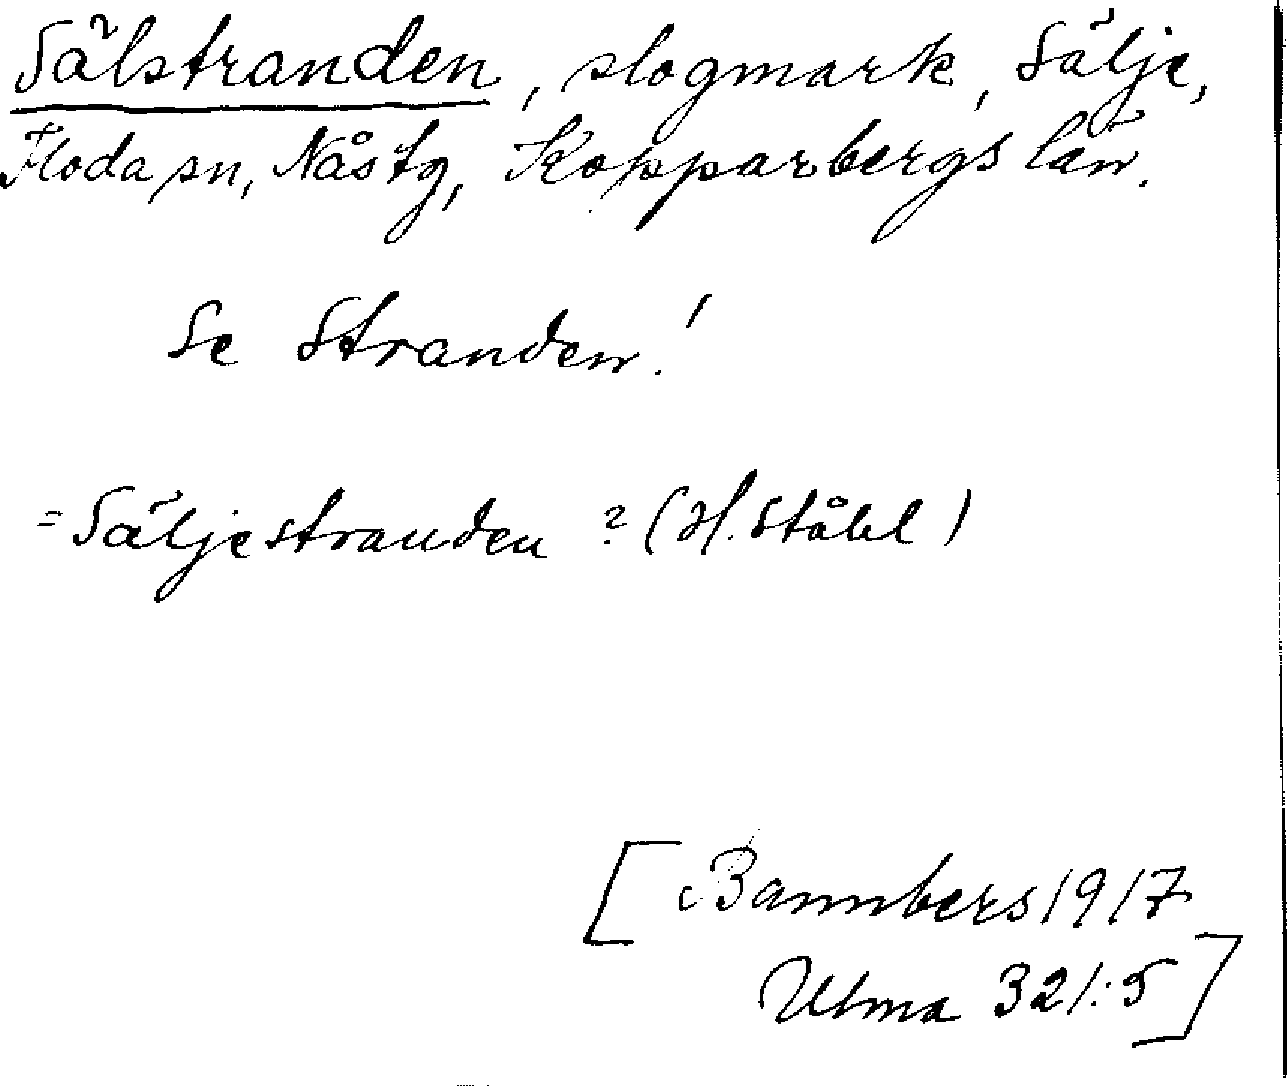 Sälstranden, slogmark, Sälje,
Floda sn, Nås tg, Kopparbergs län.
Se Stranden!
= Säljestranden? (H. Ståhl)
[Bannbers 1917
Ulma 321:5]